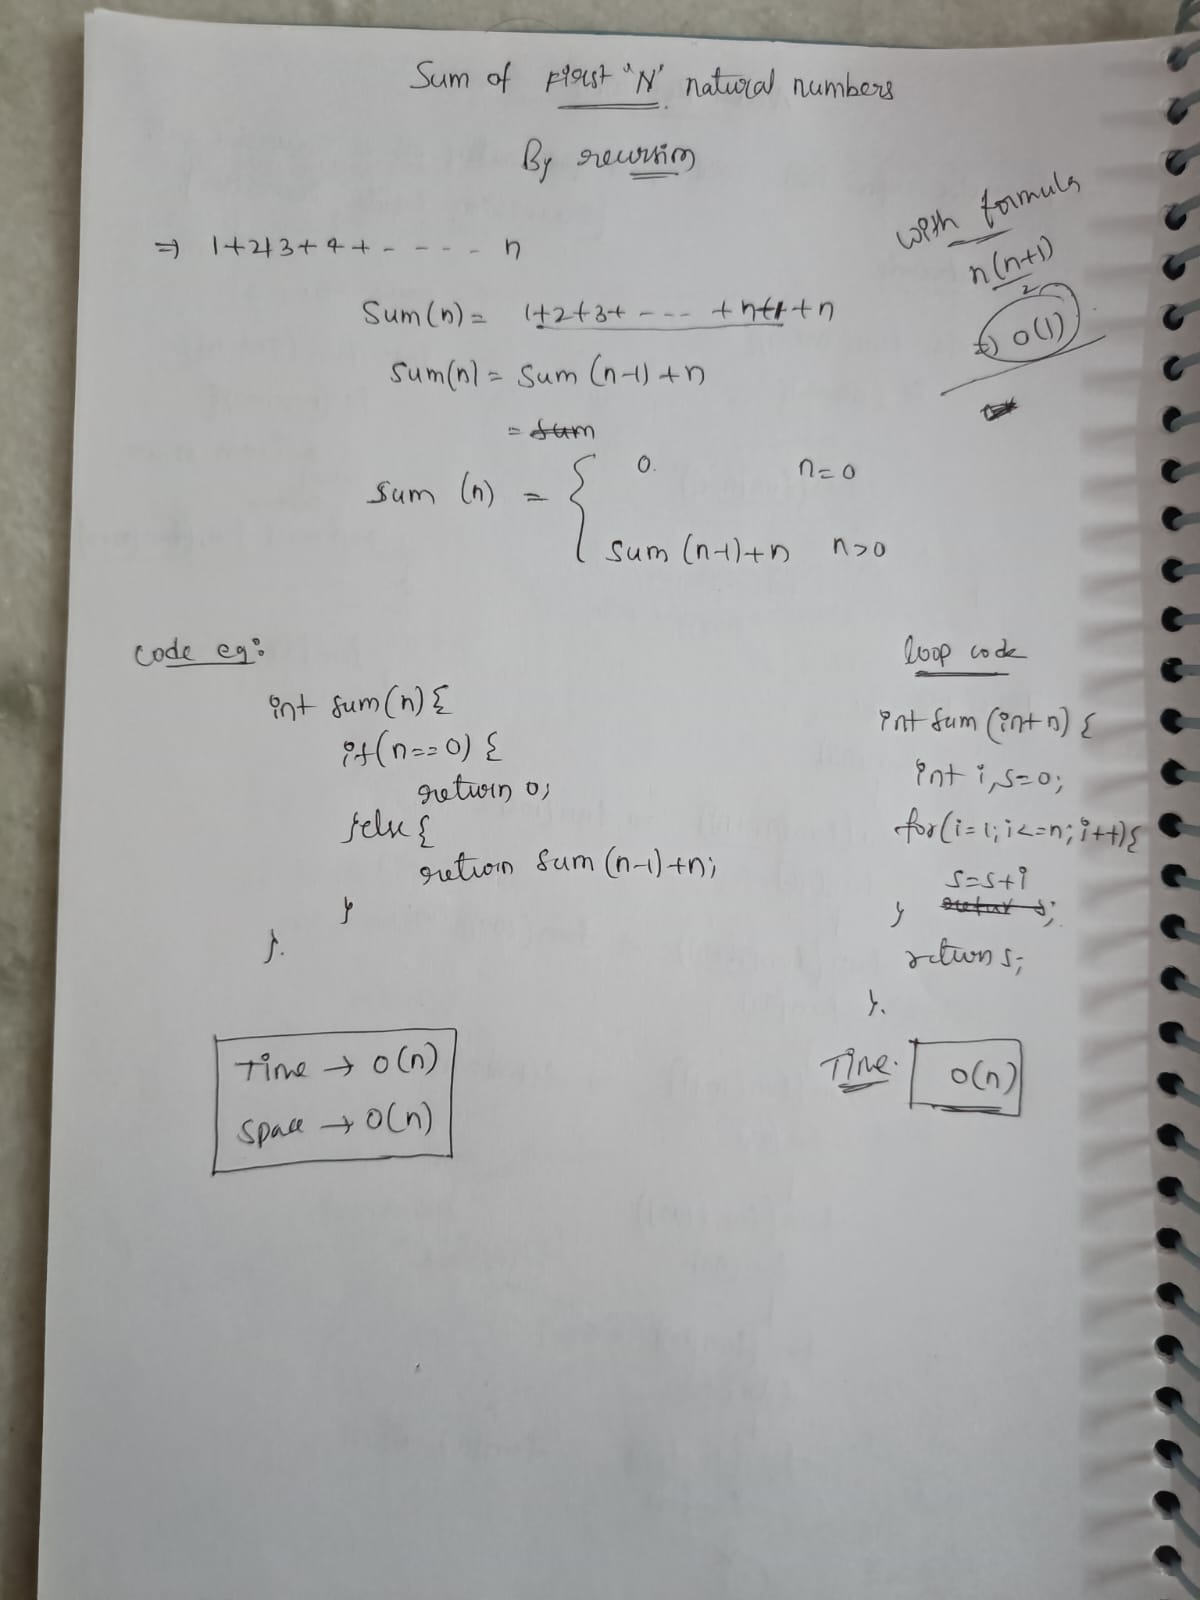 Sum of First "N" natural numbers
By recursion
⇒ 1+2+3+4+ - - - - - n
with formula
n(n+1)
2
⇒ O(1)
Sum(n) = 1+2+3+ - - - + n-1 + n
Sum(n) = Sum (n-1) + n
= sum
Sum (n) = { 0. n=0
Sum (n-1)+n n>0
Code eg:
int sum(n) {
if(n==0) {
return 0;
}else {
return sum (n-1)+n;
}
}.
Time → O(n)
Space → O(n)
loop code
int sum (int n) {
int i, s=0;
for(i=1; i<=n; i++){
s=s+i
} retur s;
return s;
}.
Time. O(n)